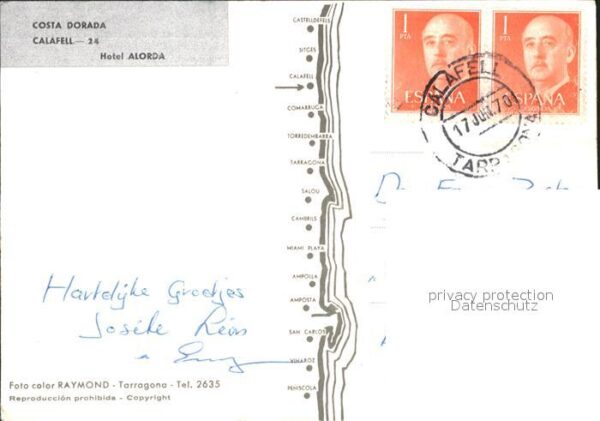 COSTA DORADA
CALAFELL — 24
Hotel ALORDA
CASTELLDEFELS
SITGES
CALAFELL
COMARRUGA
TORREDEMBARRA
TARRAGONA
SALOU
CAMBRILS
MIAMI PLAYA
AMPOLLA
AMPOSTA
SAN CARLOS
VINAROZ
PEÑISCOLA
1
PTA
ESPAÑA
1
PTA
ESPAÑA
CALAFELL
17 JUN.70
TARRAGONA
Hartelijke Groetjes
Joséke
privacy protection
Datenschutz
Foto color RAYMOND - Tarragona - Tel. 2635
Reproducción prohibida - Copyright